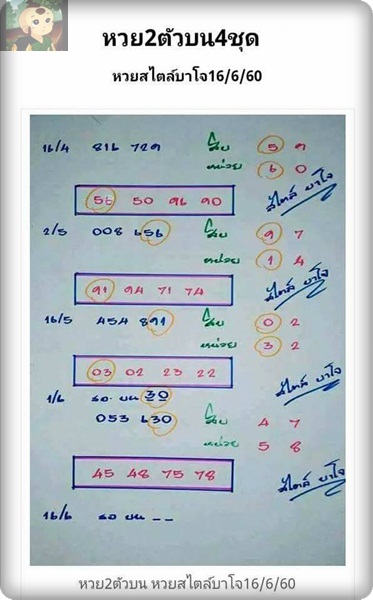 หวย2ตัวบน4ชุด
หวยสไตล์บาโจ16/6/60
16/4 816 729 สิบ 5 9
หน่วย 6 0
56 50 96 90 สไตล์ บาโจ
2/5 008 656 สิบ 9 7
หน่วย 1 4
91 94 71 74 สไตล์ บาโจ
16/5 454 891 สิบ 0 2
หน่วย 3 2
03 02 23 22 สไตล์ บาโจ
1/6 รอ บน 30
053 630 สิบ 4 7
หน่วย 5 8
45 48 75 78 สไตล์ บาโจ
16/6 รอ บน --
หวย2ตัวบน หวยสไตล์บาโจ16/6/60